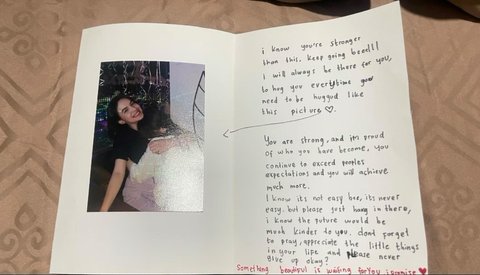 i know you're stronger
than this. keep going beedl!
i will always be there for you,
to hug you everytime you
need to be huggud like
this picture ♡
You are strong, and im proud
of who you have become, you
continue to exceed peoples
expectations and you will achieve
much more.
I know its not easy bee, its never
easy. but please just hang in there,
i know the future would be
much kinder to you. dont forget
to pray, appreciate the little things
in your life and please never
give up okay?
Something beautiful is waiting for you i promise ♥